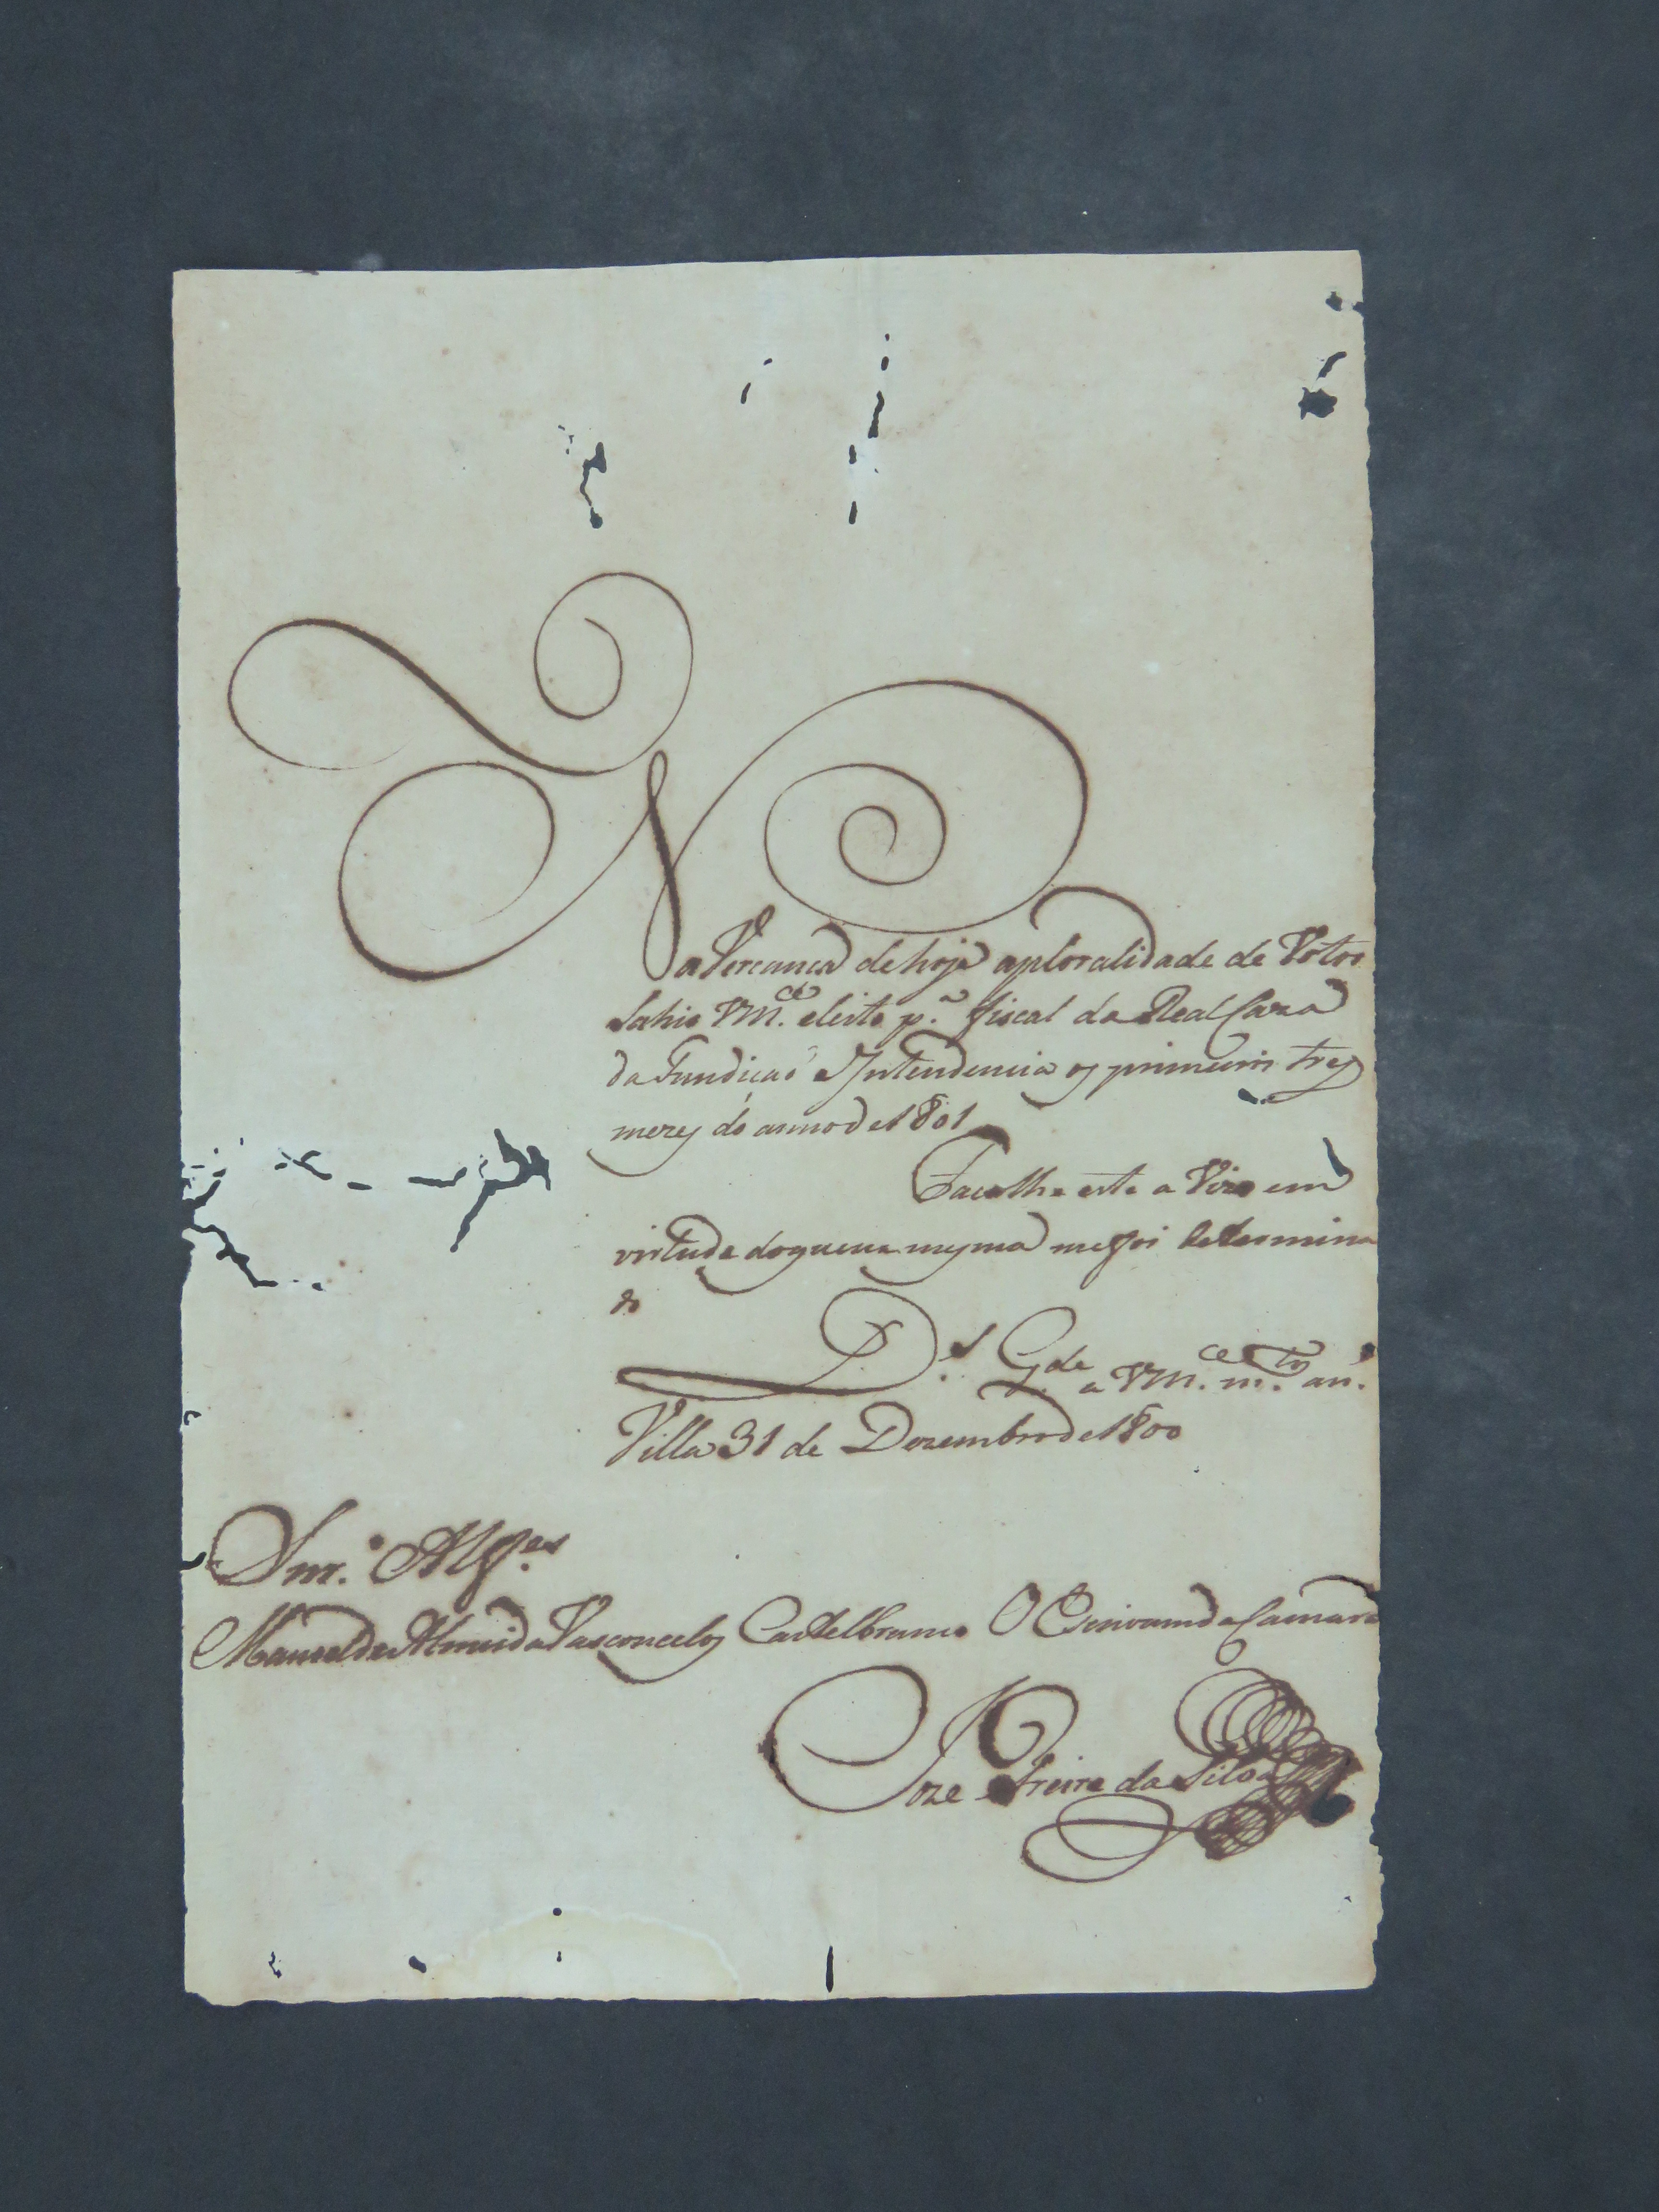 Na Vereança de hoje a ploralidade de Votos
Sahio VM.ce eleito p.a fiscal da Real Caza
da Fundiçaõ e Intendencia os primeiros trez
mezes do anno de 1801
Faço lhe este a Vizo em
virtude do que na mesma me foi determina
do
D.s G.de a VM.ce m.tos an.s
Villa 31 de Dezembro de 1800
Snr.' Alf.es
Manoel de Almeida Vasconcelos Castelbranco O Escrivam da Camara
Joze Freire da Silva